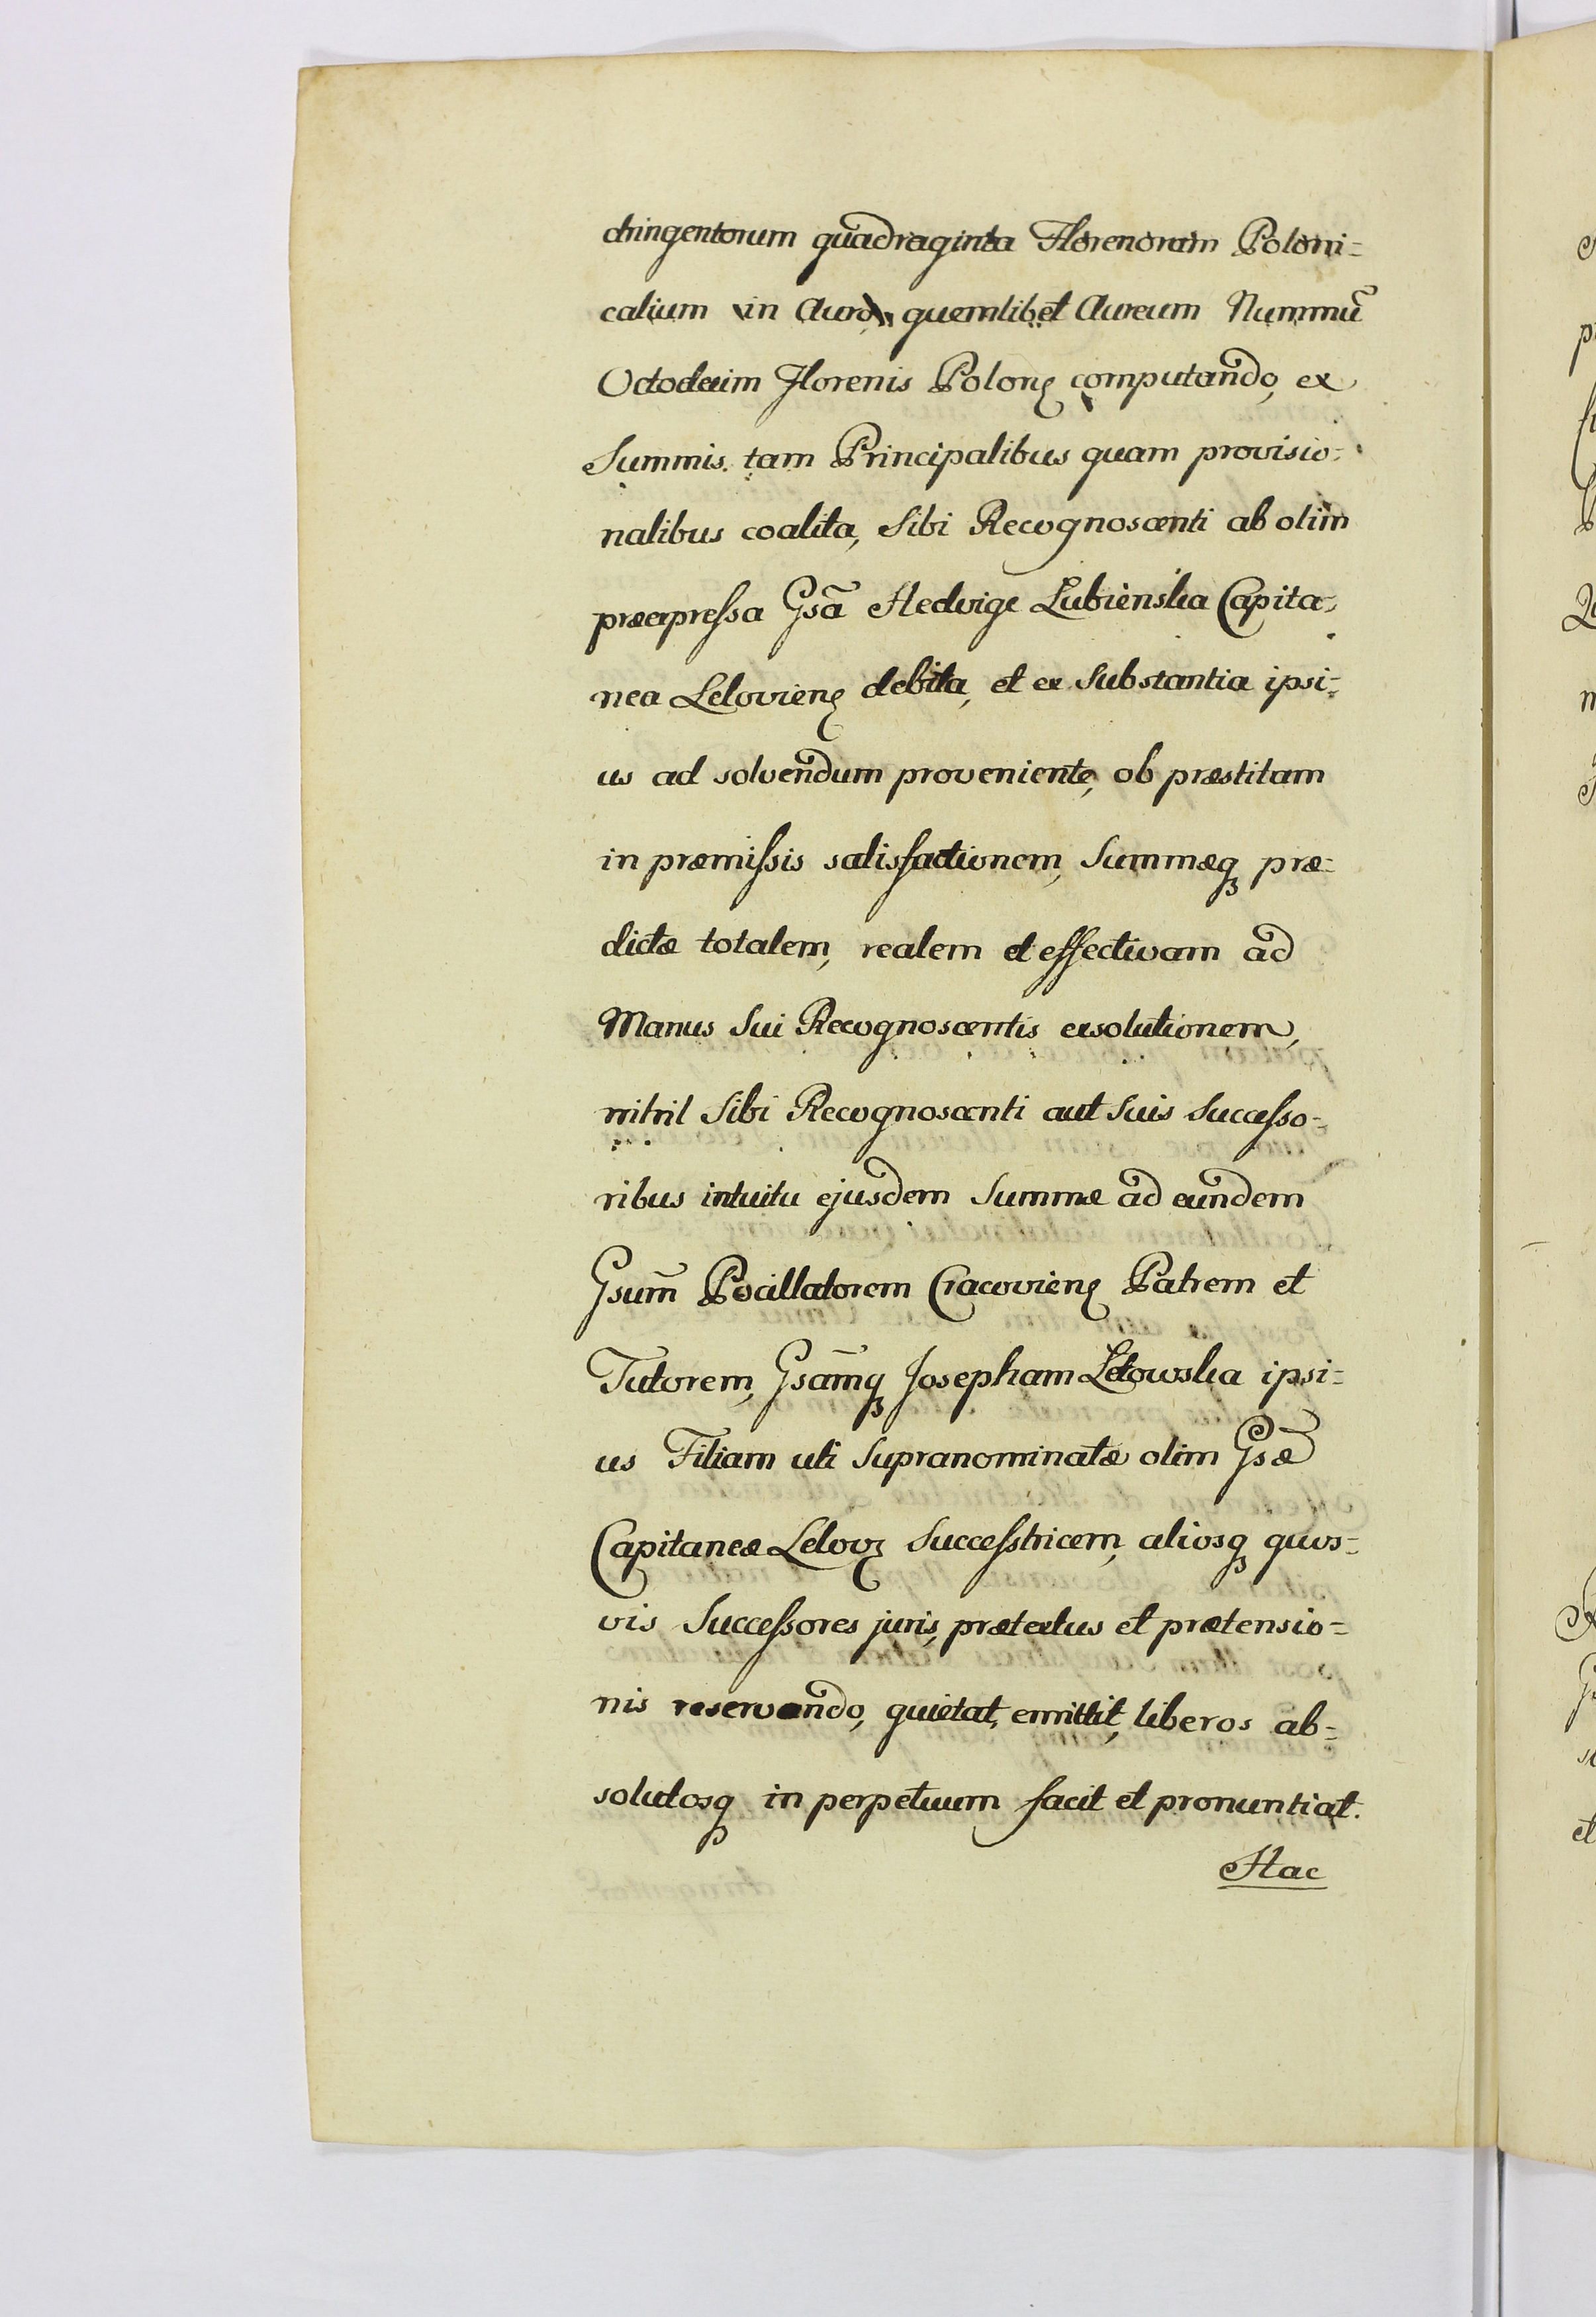 dringentorum quadraginta Florenorum Poloni=
calium in Auro, quemlibet Aureum Nummũ
Octodecim Florenis Polonꝫ computando, ex
Summis tam Principalibus quam provisio=
nalibus coalita, Sibi Recognoscenti ab olim
præexpreſsa Gsã Hedvige Lubienska Capita=
nea Lelovienꝫ debita, et ex Substantia ipsi=
us ad solvendum proveniente, ob præstitam
in præmiſsis satisfactionem, Summæqꝫ præ=
dictæ totalem, realem et effectivam ad
Manus Sui Recognoscentis exsolutionem,
nihil Sibi Recognoscenti aut Suis Succeſso=
ribus intuitu ejusdem Summæ ad eundem
Gsum̃ Pocillatorem Cracovienꝫ Patrem et
Tutorem, Gsam̃qꝫ Josepham Letowska ipsi=
us Filiam uti Supranominatæ olim Gsæ̃
Capitaneæ Lelovꝫ Succeſstricem, aliosqꝫ quos=
vis Succeſsores juris, prætextus et prætensio=
nis reservando, quietat, emittit, liberos ab=
solutosqꝫ in perpetuum facit et pronuntiat.
Hac